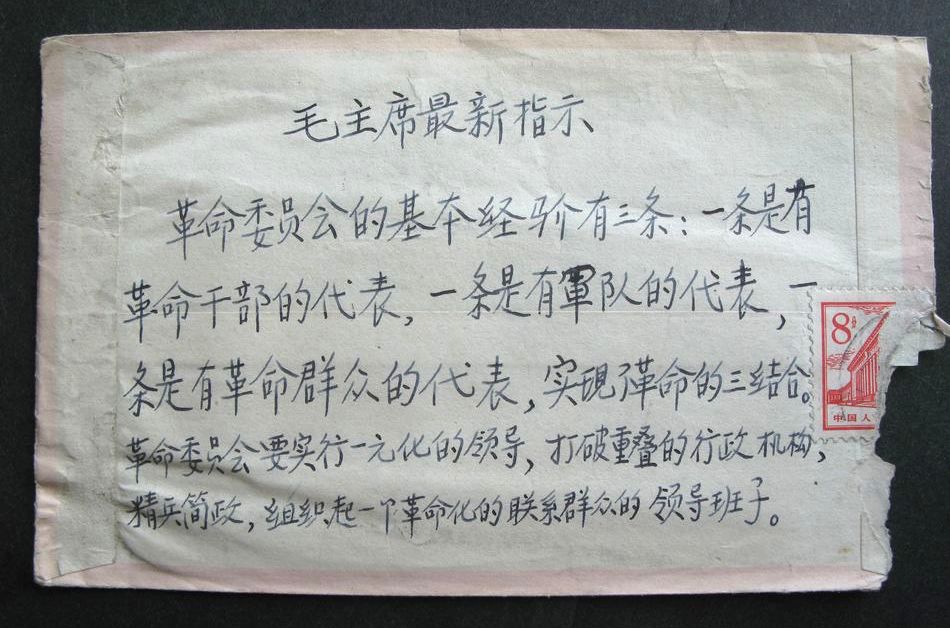 毛主席最新指示
革命委员会的基本经验有三条：一条是有
革命干部的代表，一条是有軍队的代表，一
条是有革命群众的代表，实现了革命的三结合。
革命委员会要实行一元化的领导，打破重叠的行政机构，
精兵简政，组织起一个革命化的联系群众的领导班子。
8分
中国人